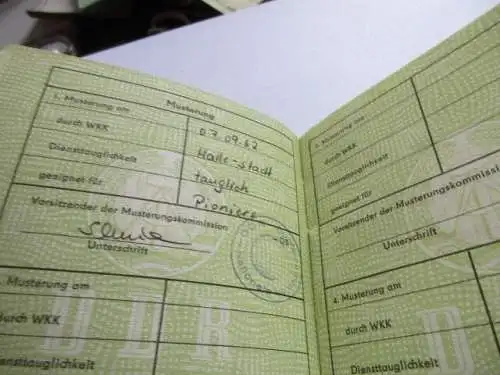 Musterung
1. Musterung am 07.09.62
durch WKK Halle-Stadt
Diensttauglichkeit tauglich
geeignet für Pioniere
Vorsitzender der Musterungskommission
Unterschrift
Musterung am
durch WKK
Diensttauglichkeit
DDR
Musterung am
durch WKK
Diensttauglichkeit
geeignet für
Vorsitzender der Musterungskommission
Unterschrift
4. Musterung am
durch WKK
Diensttauglichkeit
D